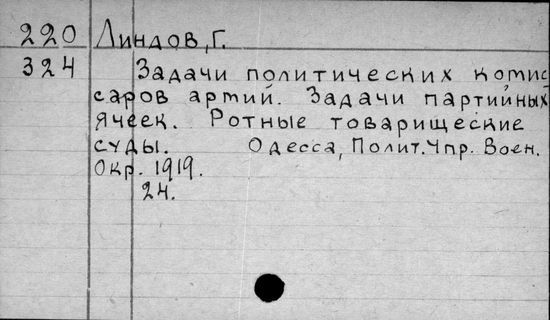 220 Линдов, Г.
324 Задачи политических комис
саров армий. Задачи партийных
ячеек. Ротные товарищеские
суды. Одесса, Полит. Упр. Воен.
Окр. 1919.
24.